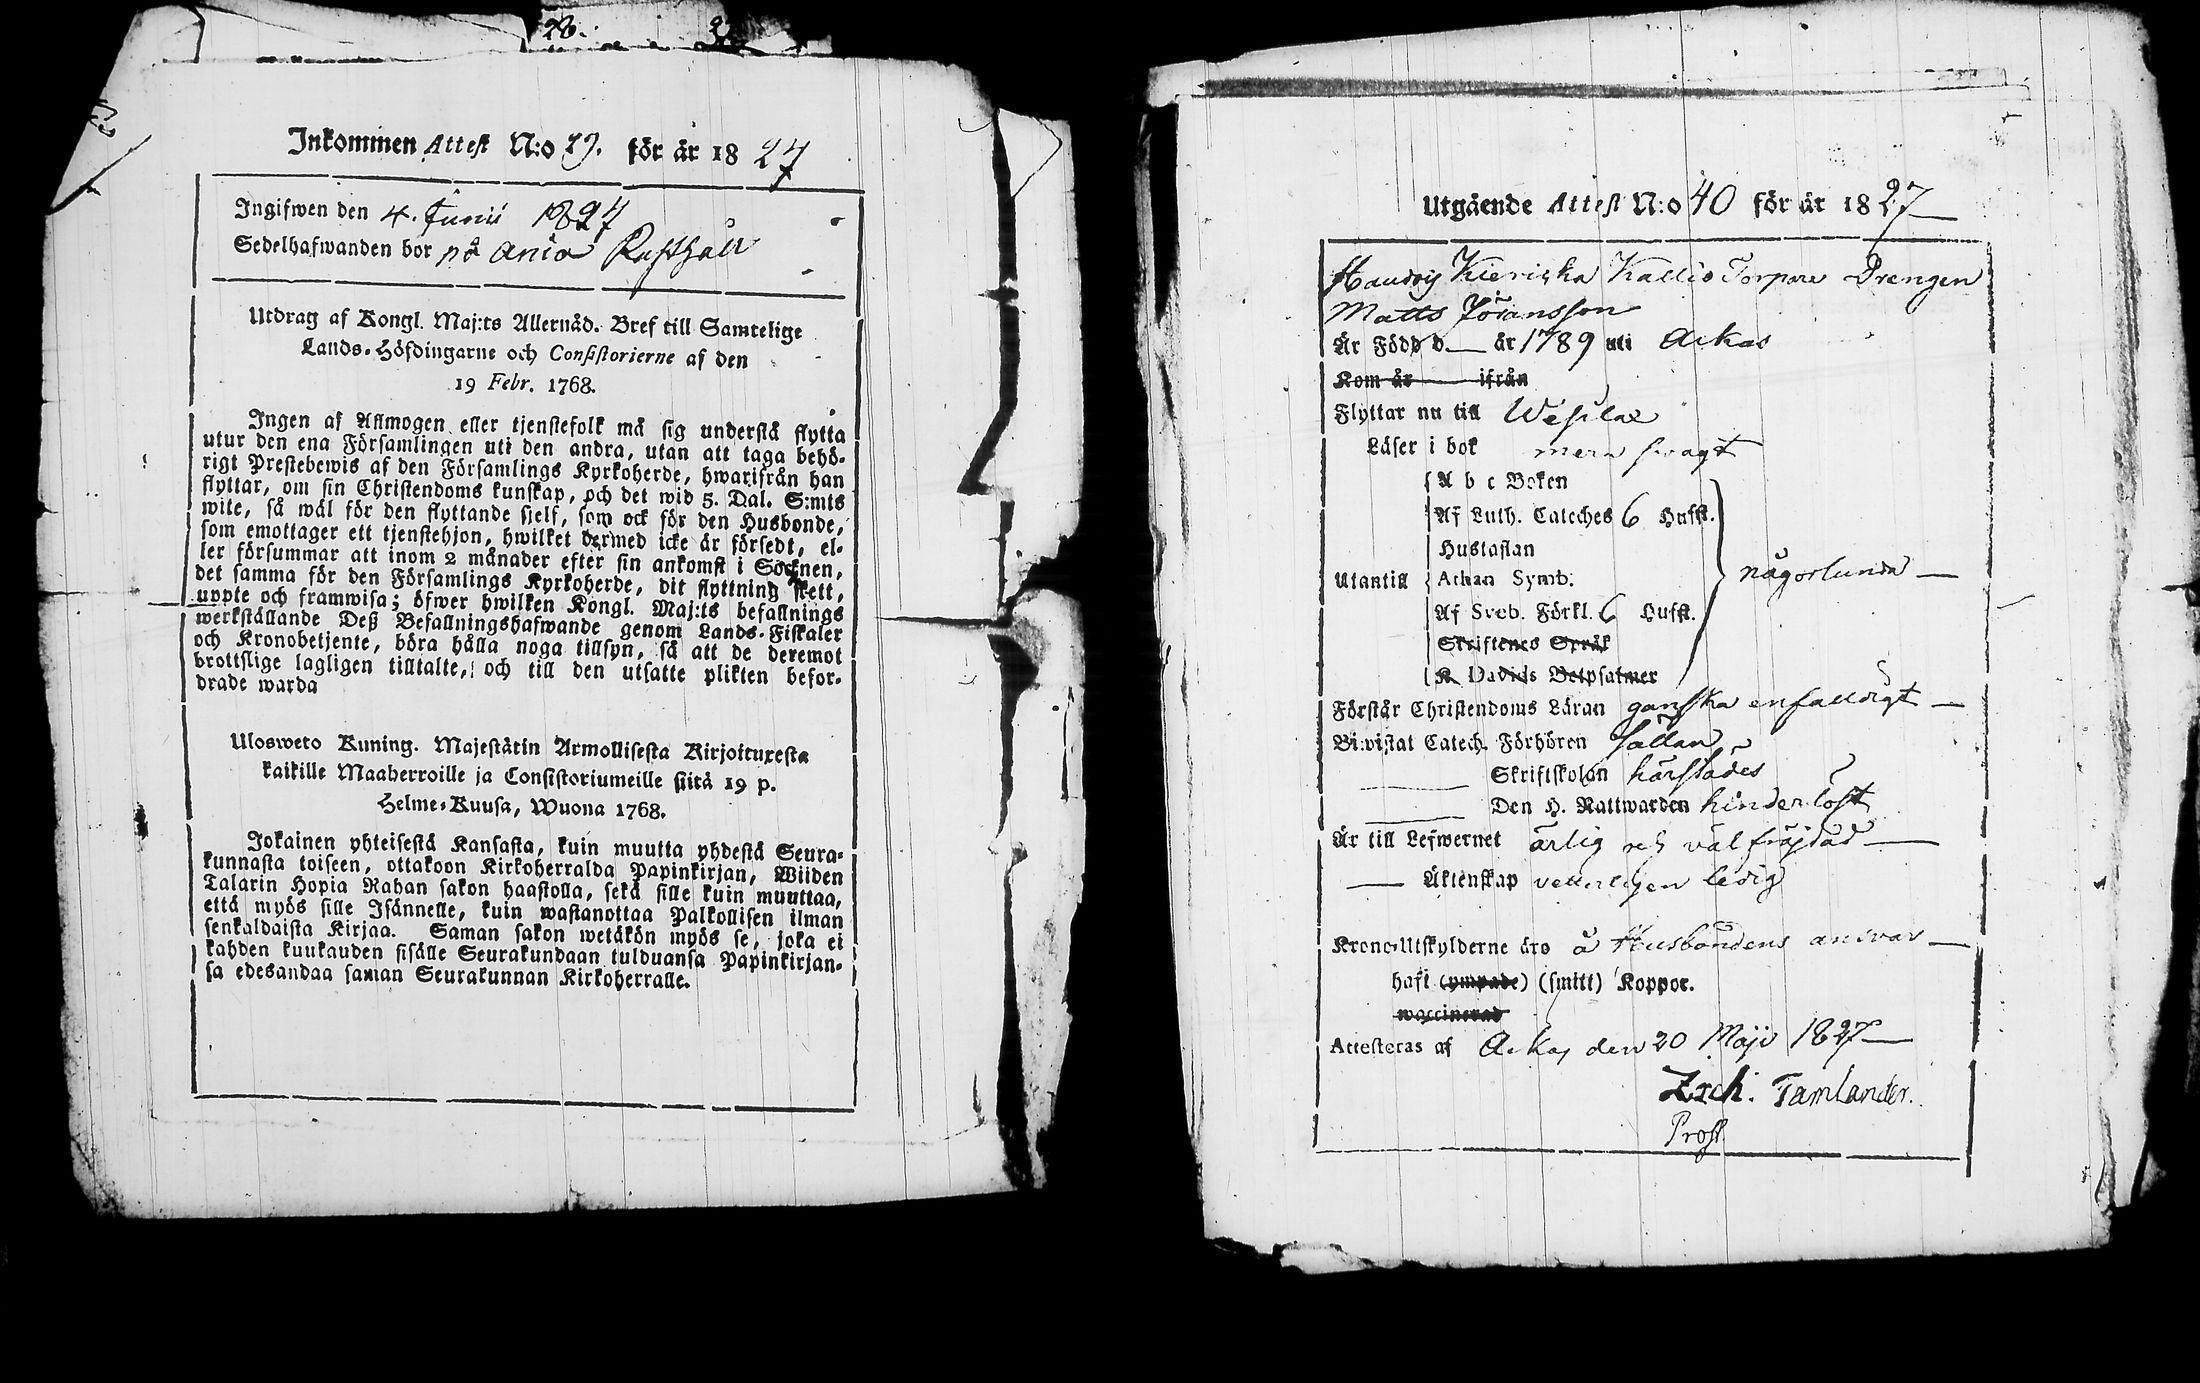 28.
Inkommen Attest N:o 29. för år 1827
Ingifwen den 4. Junii 1827
Sedelhafwanden bor på Ania Rusthåll
Utdrag af Kongl. Maj:ts Allernåd. Bref till Samtelige
Lands-Höfdingarne och Consistorierne af den
19 Febr. 1768.
Ingen af Allmogen eller tjenstefolk må sig understå flytta
utur den ena Församlingen uti den andra, utan att taga behö-
rigt Prestebewis af den Församlings Kyrkoherde, hwarifrån han
flyttar, om sin Christendoms kunskap, och det wid 5. Dal. S:mts
wite, så wäl för den flyttande sielf, som ock för den Husbonde,
som emottager ett tjenstehjon, hwilket dermed icke är försedt, el-
ler försummar att inom 2 månader efter sin ankomst i Socknen,
det samma för den Församlings Kyrkoherde, dit flyttning skett,
uppte och framwisa; öfwer hwilken Kongl. Maj:ts befallnings
werkställande Deß Befallningshafwande genom Lands-Fiskaler
och Kronobetjente, böra hålla noga tillsyn, så att de deremot
brottslige lagligen tilltalte, och till den utsatte plikten befor-
drade warda
Ulosweto Kuning. Majestätin Armollisesta Kirjoituxesta
kaikille Maaherroille ja Consistoriumeille siitä 19 p.
Helme-Kuusa, Wuona 1768.
Jokainen yhteisestä Kansasta, kuin muutta yhdestä Seura-
kunnasta toiseen, ottakoon Kirkoherralda Papinkirjan, Wiiden
Talarin Hopia Rahan sakon haastolla, sekä sille kuin muuttaa,
että myös sille Isännelle, kuin wastanottaa Palkollisen ilman
senkaldaista Kirjaa. Saman sakon wetäkön myös se, joka ei
kahden kuukauden sisälle Seurakundaan tulduansa Papinkirjan-
sa edesandaa saman Seurakunnan Kirkoherralle.
Utgående Attest N:o 40 för år 1827
Kieriska Kallio Torpare Drengen
Matts Jöransson
Är Född d. år 1789 uti Ackas
Kom år ifrån
Flyttar nu till Wesilax
Läser i bok mera svagt
A b c Boken
Af Luth. Cateches 6 Hufst.
Hustaflan
Utantill Athan Symb. någorlunda
Af Sveb. Förkl. 6 Hufst.
Skriftenes Språk
K Davids Botpsalmer
Förstår Christendoms Läran ganska enfalldigt
Bivistat Catech. Förhören sällan
Skriftskolan härstädes
Den H. Nattwarden hinderlöst
Är till Lefwernet ärlig och väl fräjdad
Äktenskap veterligen ledig
Krono-Utskylderne äro å Husbondens ansvar
haft (ympade) (smitt) Koppor.
waccinerad
Attesteras af Ackas den 20 Maji 1827
Zach. Tamlander.
Prost